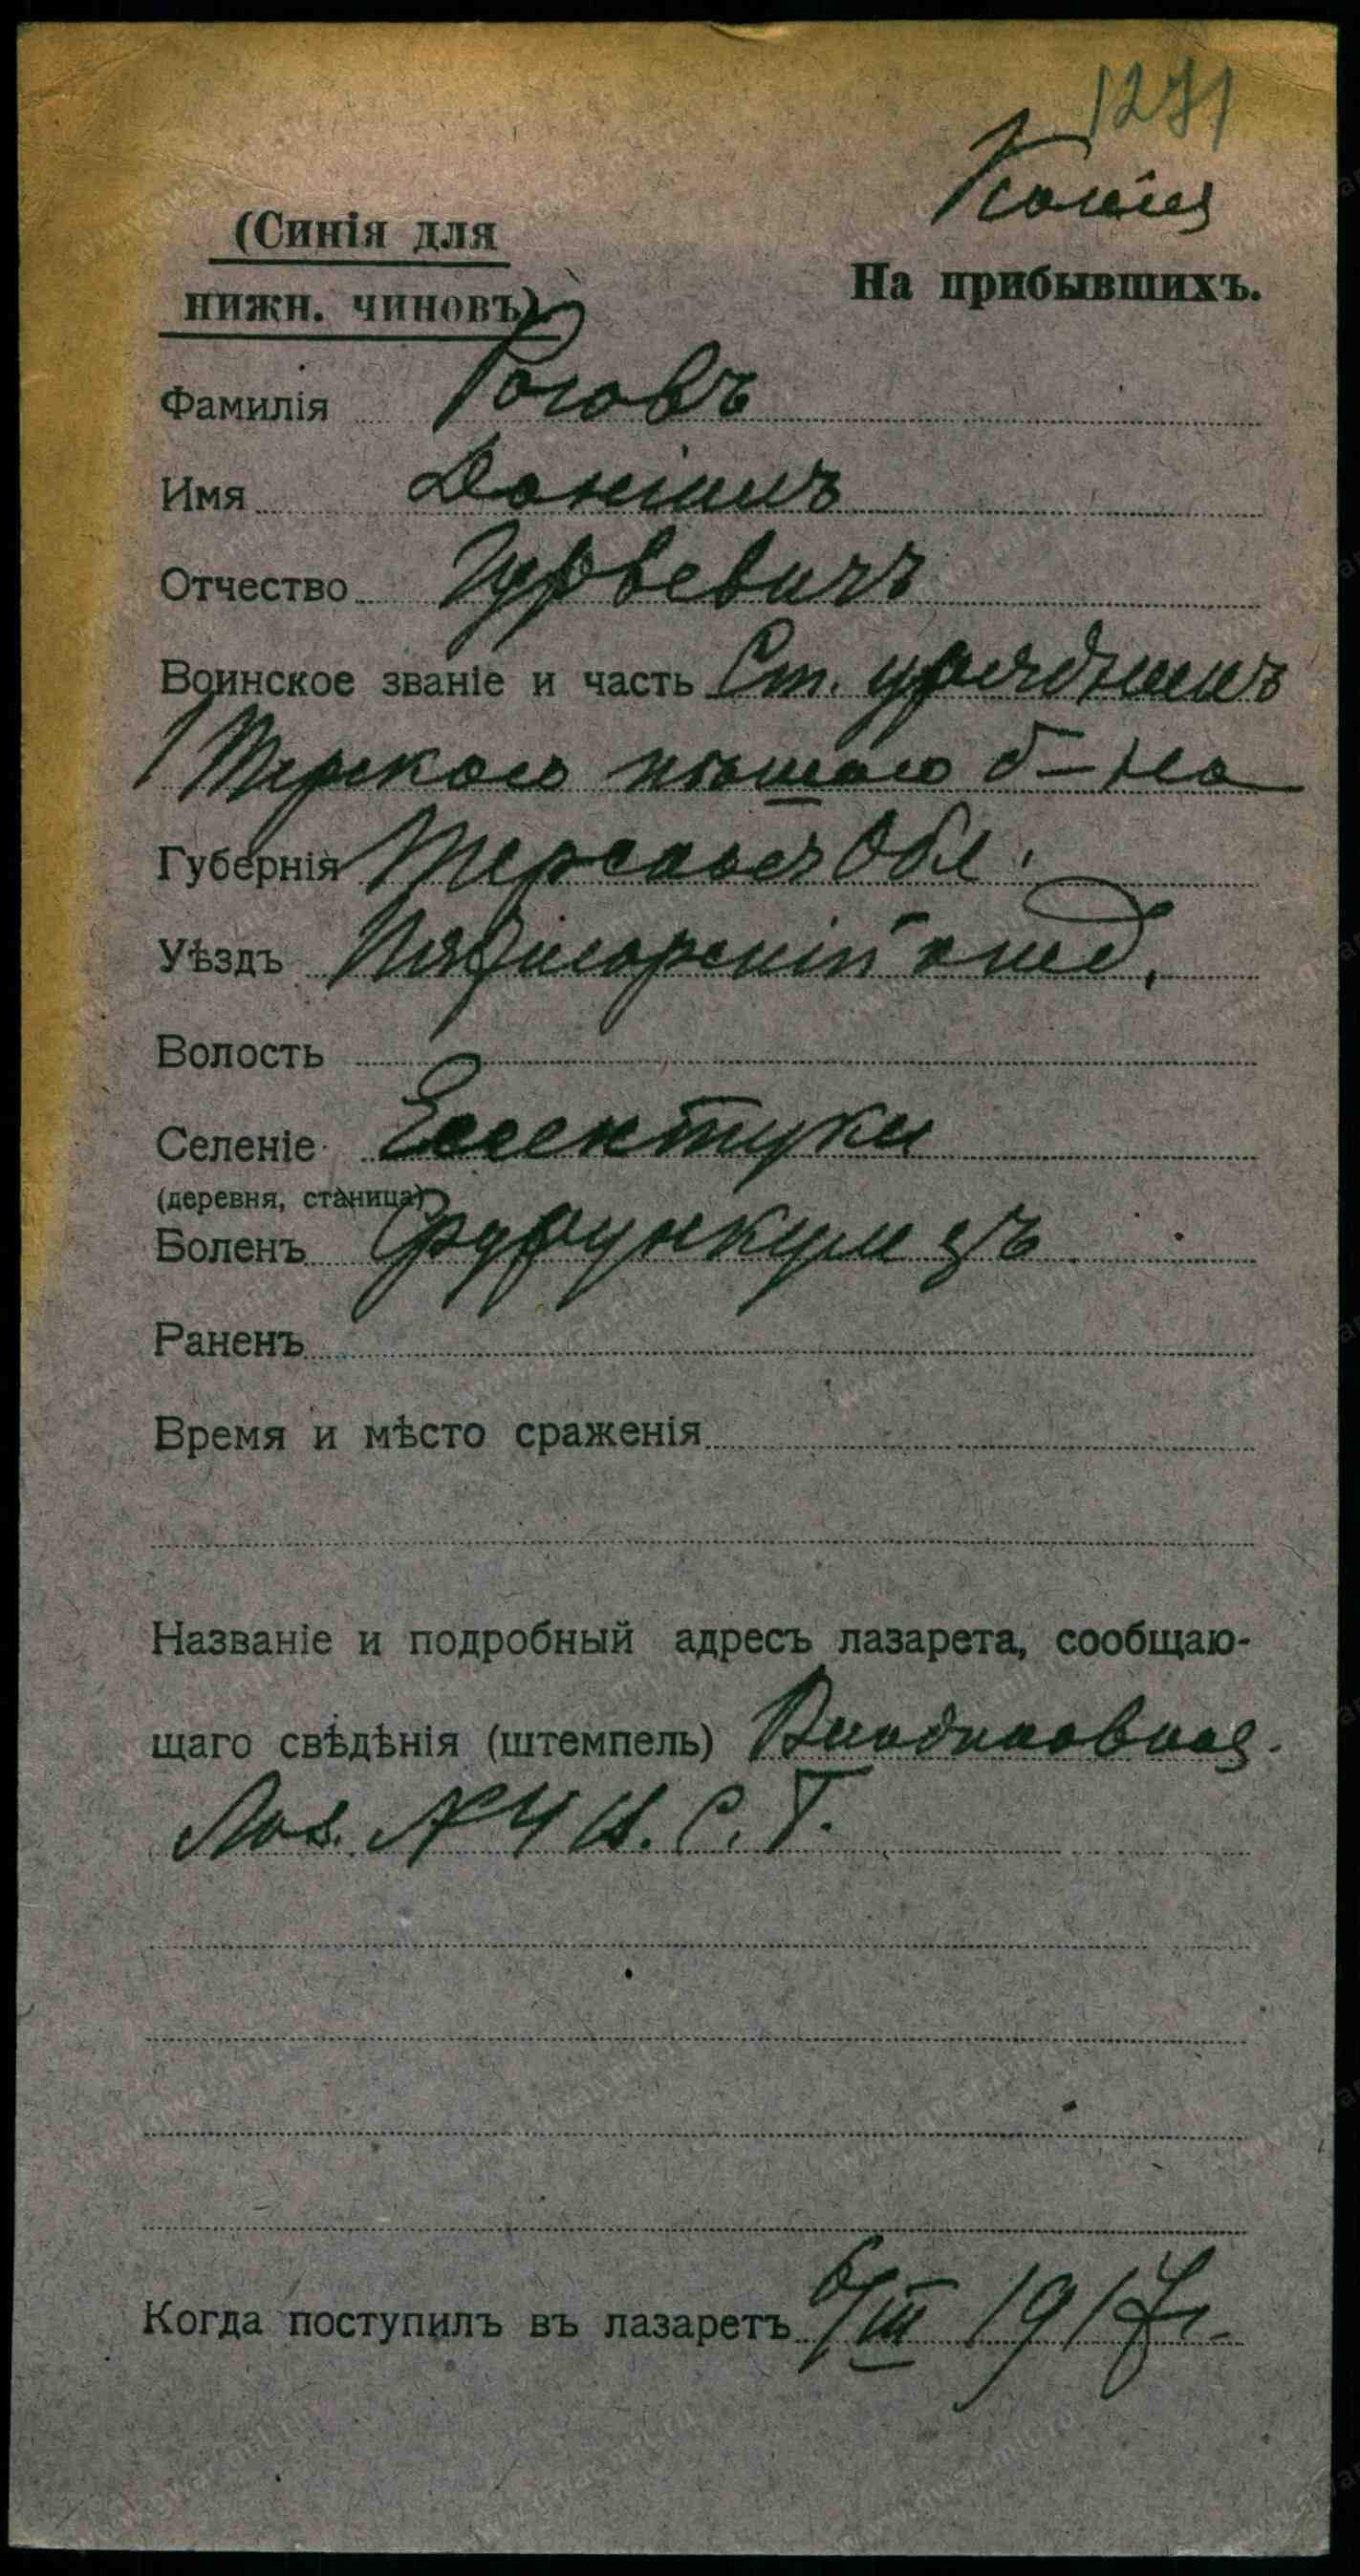 1271
Копія
(Синія для
нижн. чиновъ)
На прибывшихъ.
Фамилія Роговъ
Имя Даніилъ
Отчество Гурьевичъ
Воинское званіе и часть Ст. урядникъ
1 Терскаго пѣшаго б-на
Губернія Терская Обл.
Уѣздъ Пятигорскій отд.
Волость
Селеніе Ессентуки
(деревня, станица)
Боленъ Фурункулезъ
Раненъ
Время и мѣсто сраженія
Названіе и подробный адресъ лазарета, сообщаю-
щаго свѣдѣнія (штемпель) Владикавказ.
Лаз. № 4 В. С. Г.
Когда поступилъ въ лазаретъ 6/III 1917 г.